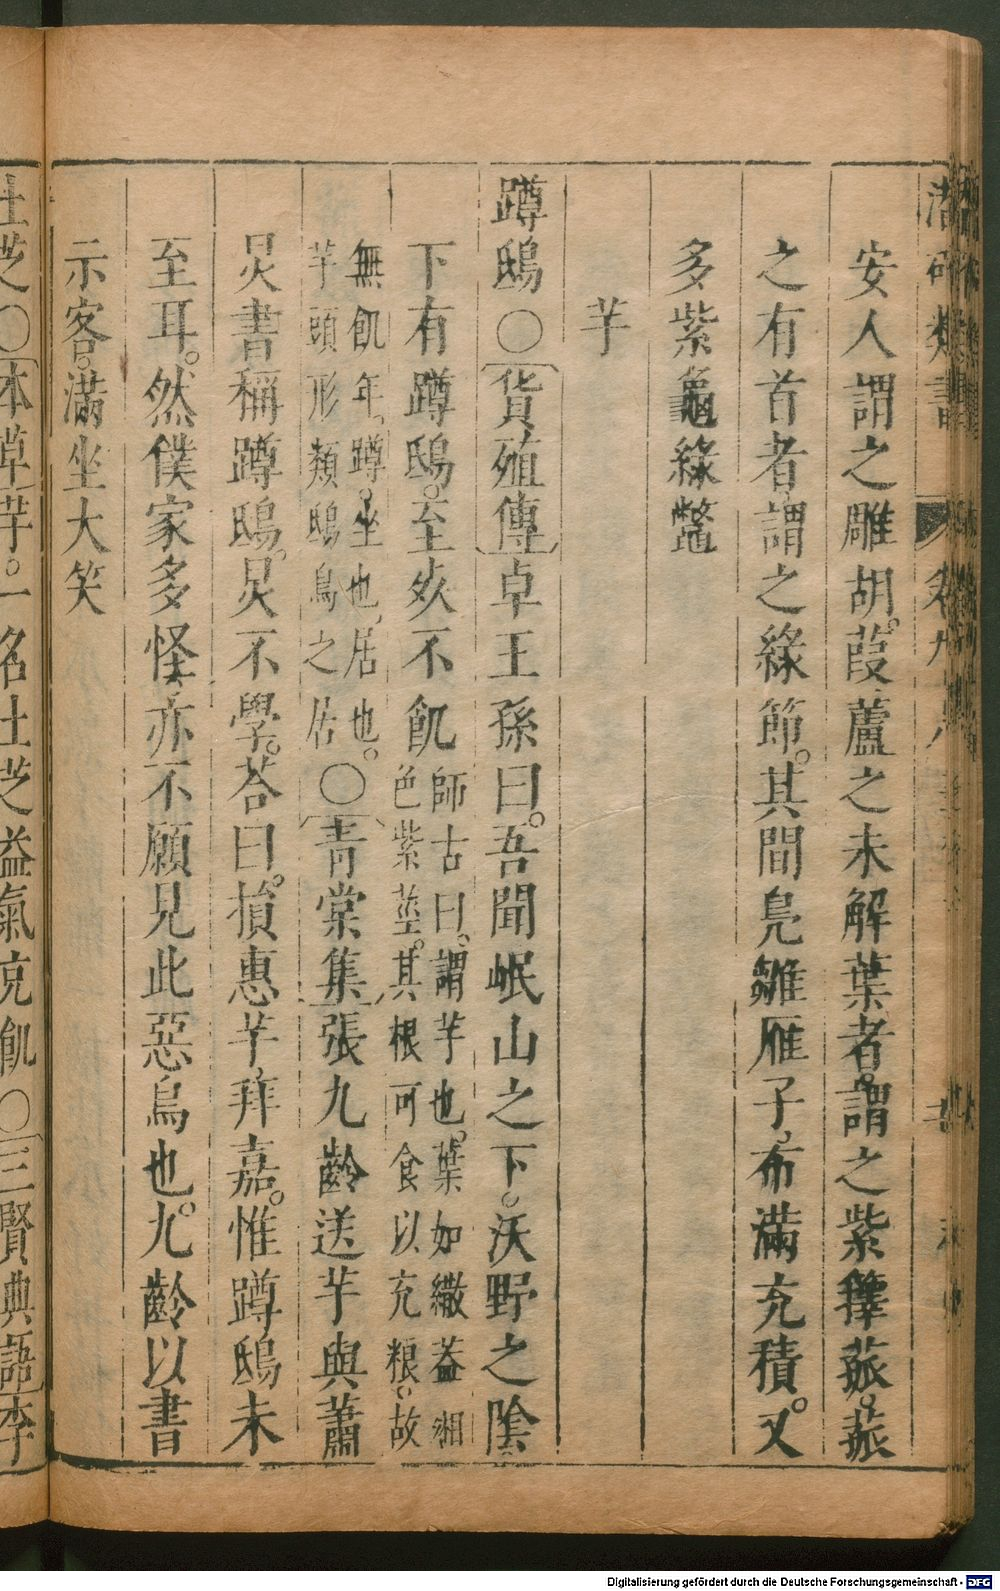 安人謂之雕胡。葭蘆之未解葉者。謂之紫籜菰。菰
之有首者。謂之緑節。其間鳧雛雁子。布滿充積。又
多紫龜緑鼈
芋
蹲鴟〇貨殖傳卓王孫曰。吾聞岷山之下。沃野之隂
下有蹲鴟。至死不飢師古曰。謂芋也。葉如繖蓋緗
色紫莖。其根可食以充粮。故
無飢年。蹲。坐也。居也。
芋頭形類鴟鳥之居
〇青棠集張九齡送芋與蕭
炅書稱蹲鴟。炅不學。荅曰。損惠芋。拜嘉。惟蹲鴟未
至耳。然僕家多怪。亦不願見此惡鳥也。九齡以書
示客。滿坐大笑
土芝〇本草芋。一名土芝益氣充飢〇三賢典語李
Digitalisierung gefördert durch die Deutsche Forschungsgemeinschaft - DFG